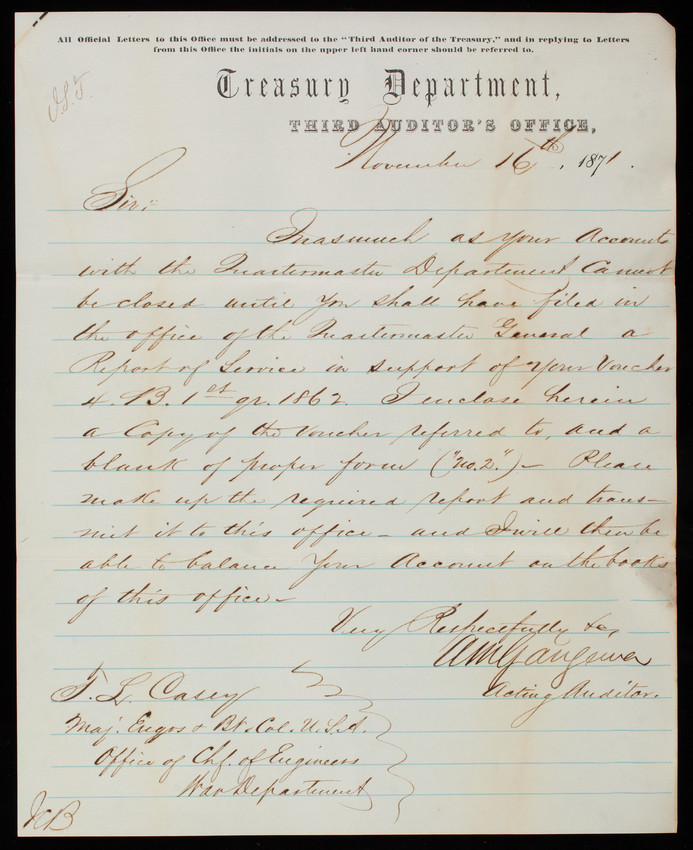 All Official Letters to this Office must be addressed to the "Third Auditor of the Treasury," and in replying to Letters
from this Office the initials on the upper left hand corner should be referred to.
Treasury Department,
THIRD AUDITOR'S OFFICE,
November 16th, 1871.
Sir;
Inasmuch as your Accounts
with the Quartermaster Department Cannot
be closed until you shall have filed in
the office of the Quartermaster General a
Report of Service in support of your Voucher
4. B. 1st qr. 1862. I enclose herein
a Copy of the Voucher referred to, and a
blank of proper form ("no. 2".) – Please
make up the required report and trans–
mit it to this office – and I will then be
able to balance your Account on the books
of this office –
Very Respectfully &c,
Acting Auditor.
T. L. Casey
Maj. Engrs & Bt. Col. U.S.A.
Office of Chf. of Engineers
War Department